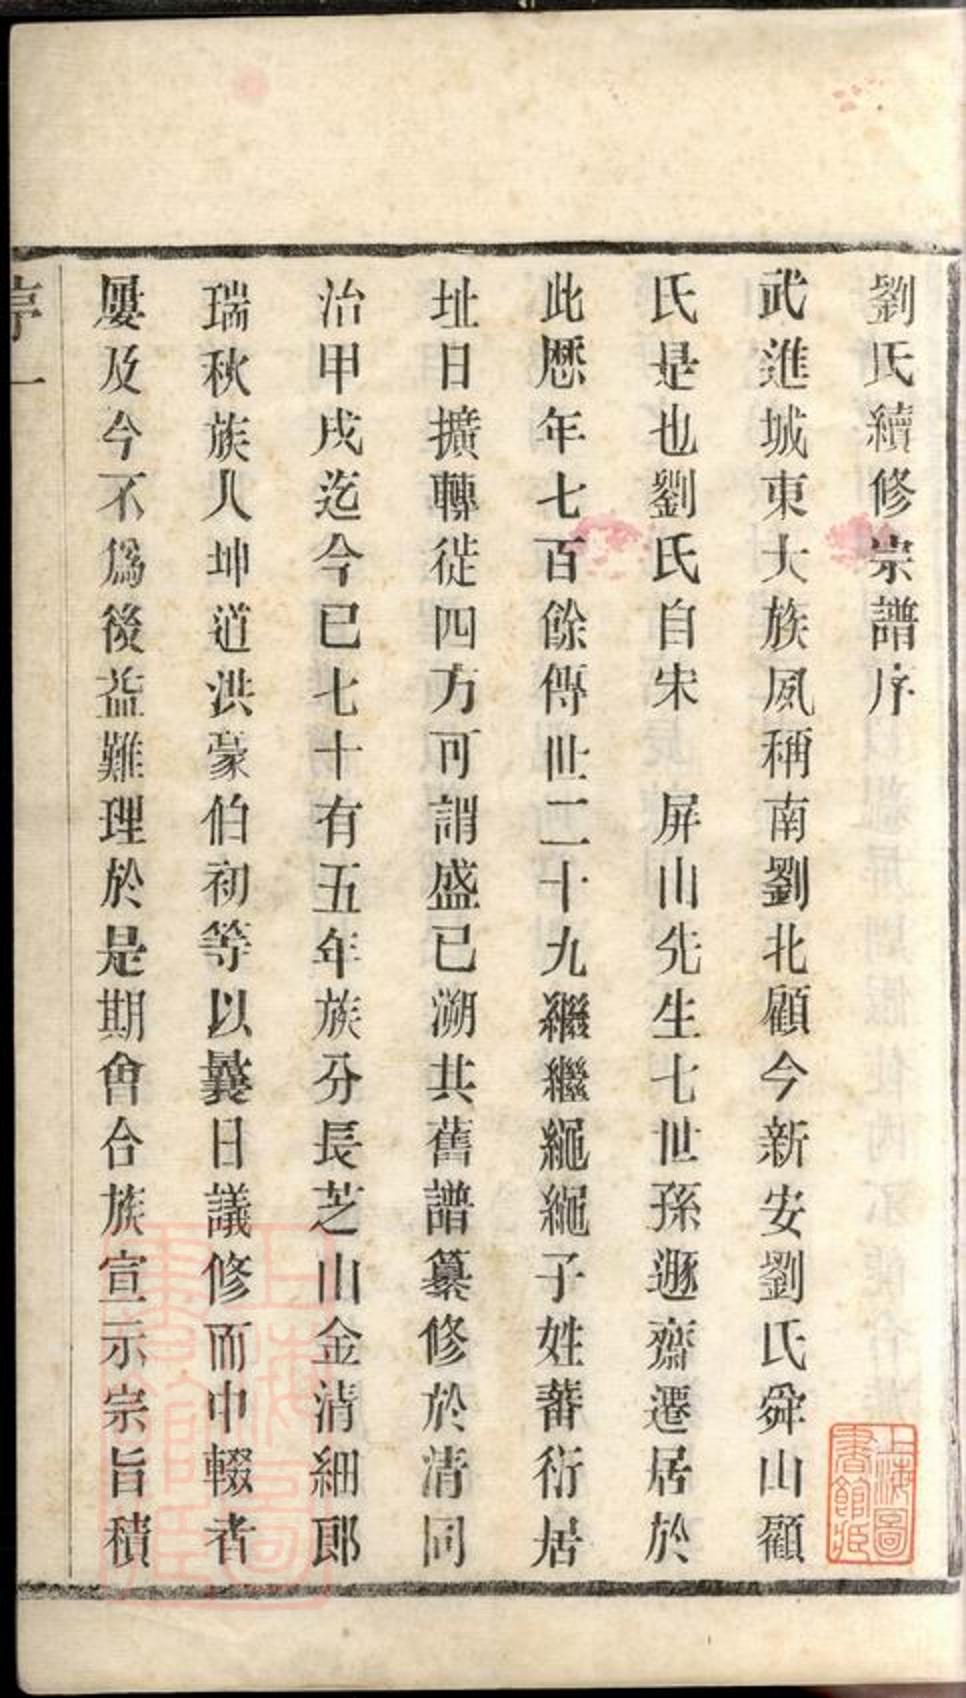 劉氏續修宗譜序
武進城東大族夙稱南劉北顧今新安劉氏舜山顧
氏是也劉氏自宋　屏山先生七世孫遯齋遷居於
此歷年七百餘傳世二十九繼繼繩繩子姓蕃衍居
址日擴轉徙四方可謂盛已溯其舊譜纂修於清同
治甲戌迄今已七十有五年族分長芝山金清細郎
瑞秋族人坤道洪蒙伯初等以曩日議修而中輟者
屢及今不爲後益難理於是期會合族宣示宗旨積
序一
上海圖書館藏
上海圖書館藏